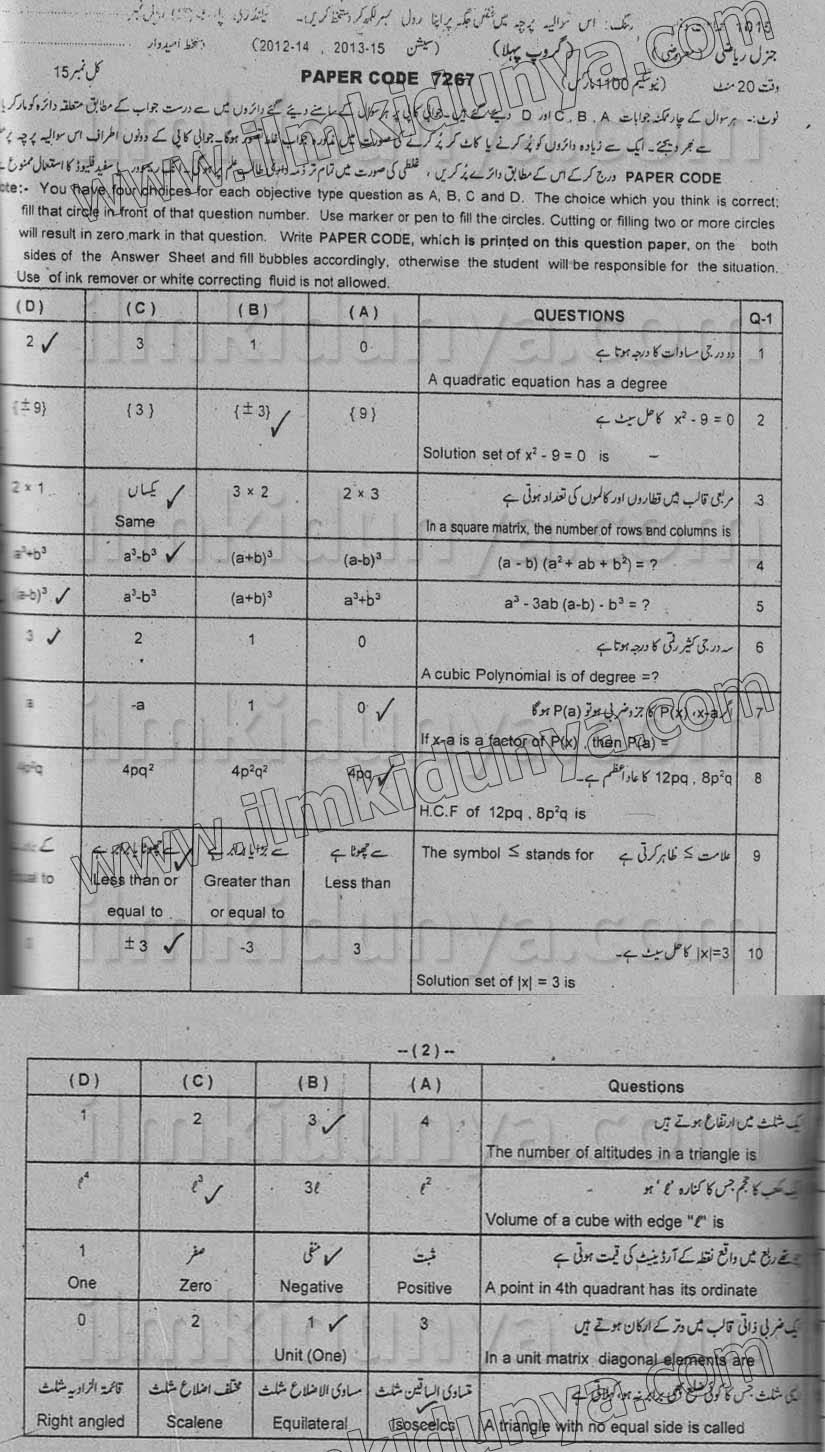 1015
جنرل ریاضی (معروضی) (گروپ پہلا) (سیشن 2013-15 , 2012-14) دستخط امیدوار
وقت 20 منٹ (نیو سکیم 1100 مارکس) PAPER CODE 7267 کل نمبر 15
نوٹ:- ہر سوال کے چار ممکنہ جوابات A , B , C اور D دیئے گئے ہیں۔ جوابی کاپی پر ہر سوال کے سامنے دیئے گئے دائروں میں سے درست جواب کے مطابق متعلقہ دائرہ کو مارکر یا
سے بھر دیجئے۔ ایک سے زیادہ دائروں کو پُر کرنے یا کاٹ کر پُر کرنے کی صورت میں مذکورہ جواب غلط تصور ہوگا۔ جوابی کاپی کے دونوں اطراف اس سوالیہ پرچہ پر
PAPER CODE درج کر کے اس کے مطابق دائرے پُر کریں ، غلطی کی صورت میں تمام تر ذمہ داری طالب علم پر ہوگی۔ یا سفید فلیوڈ کا استعمال ممنوع
ote:- You have four choices for each objective type question as A, B, C and D. The choice which you think is correct;
fill that circle in front of that question number. Use marker or pen to fill the circles. Cutting or filling two or more circles
will result in zero mark in that question. Write PAPER CODE, which is printed on this question paper, on the both
sides of the Answer Sheet and fill bubbles accordingly, otherwise the student will be responsible for the situation.
Use of ink remover or white correcting fluid is not allowed.
(D) (C) (B) (A) QUESTIONS Q-1
2 ✓ 3 1 0 دو درجی مساوات کا درجہ ہوتا ہے 1
A quadratic equation has a degree
{±9} {3} {±3} ✓ {9} x² - 9 = 0 کا حل سیٹ ہے 2
Solution set of x² - 9 = 0 is
2 × 1 یکساں ✓ 3 × 2 2 × 3 مربعی قالب میں قطاروں اور کالموں کی تعداد ہوتی ہے 3
Same In a square matrix, the number of rows and columns is
a³+b³ a³-b³ ✓ (a+b)³ (a-b)³ (a - b) (a² + ab + b²) = ? 4
(a-b)³ ✓ a³-b³ (a+b)³ a³+b³ a³ - 3ab (a-b) - b³ = ? 5
3 ✓ 2 1 0 سہ درجی کثیر رقمی کا درجہ ہوتا ہے 6
A cubic Polynomial is of degree =?
a -a 1 0 ✓ اگر x-a ، P(x) کا جزو ضربی ہو تو P(a) ہوگا 7
If x-a is a factor of P(x) , then P(a) =
4p²q 4pq² 4p²q² 4pq ✓ 12pq , 8p²q کا عاد اعظم ہے۔ 8
H.C.F of 12pq , 8p²q is
کے سے چھوٹا یا برابر ہے سے بڑا یا برابر ہے سے چھوٹا ہے علامت ≤ ظاہر کرتی ہے The symbol ≤ stands for 9
ual to Less than or ✓ Greater than Less than
equal to or equal to
±3 ✓ -3 3 |x|=3 کا حل سیٹ ہے۔ 10
Solution set of |x| = 3 is
--(2)--
(D) (C) (B) (A) Questions
1 2 3 ✓ 4 یک مثلث میں ارتفاع ہوتے ہیں
The number of altitudes in a triangle is
ℓ⁴ ℓ³ ✓ 3ℓ ℓ² یک مکعب کا حجم جس کا کنارہ 'ℓ' ہو
Volume of a cube with edge "ℓ" is
1 صفر منفی ✓ مثبت چوتھے ربع میں واقع نقطہ کے آرڈینیٹ کی قیمت ہوتی ہے
One Zero Negative Positive A point in 4th quadrant has its ordinate
0 2 1 ✓ 3 یک ضربی ذاتی قالب میں وتر کے ارکان ہوتے ہیں
Unit (One) In a unit matrix diagonal elements are
قائمۃ الزاویہ مثلث مختلف اضلاع مثلث مساوی الاضلاع مثلث متساوی الساقین مثلث ایسی مثلث جس کا کوئی ضلع بھی برابر نہ ہو، کہلاتی ہے
Right angled Scalene Equilateral Isoscelcs ✓ A triangle with no equal side is called
www.ilmkidunya.com
www.ilmkidunya.com
ilmkidunya.com